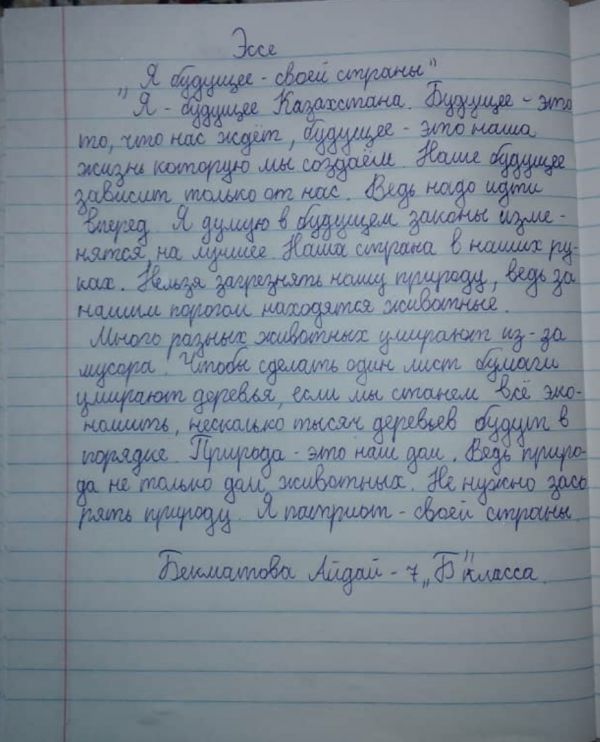 Эссе
„Я будущее - своей страны"
Я - будущее Казахстана. Будущее - это
то, что нас ждёт, будущее - это наша
жизнь которую мы создаём. Наше будущее
зависит только от нас. Ведь надо идти
вперед. Я думую в будущем законы изме-
нятся, на лучшее. Наша страна в наших ру-
ках. Нельзя загрезнять нашу природу, ведь за
нашим порогом находятся животные.
Много разных животных умирают из-за
мусора. Чтобы сделать один лист бумаги
умирают деревья, если мы станем всё эко-
номить, несколько тысяч деревьев будут в
порядке. Природа - это наш дом. Ведь приро-
да не только дом животных. Не нужно засо
рять природу. Я патриот - своей страны.
Бекматова Айдай - 7 „Б" класса.